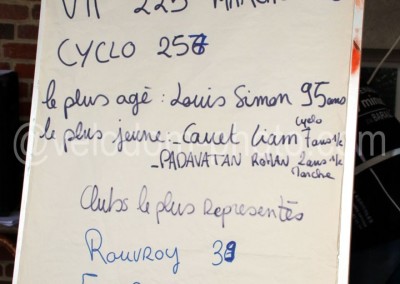 VTT 225 MARCHE
CYCLO 257
le plus agé : Louis Simon 95 ans
cyclo
le plus jeune - Cauet Liam 7 ans 1/2
- PADAVATAN ROHAN 2 ans 1/2
Marche
Clubs le plus Representés
ROUVROY 39